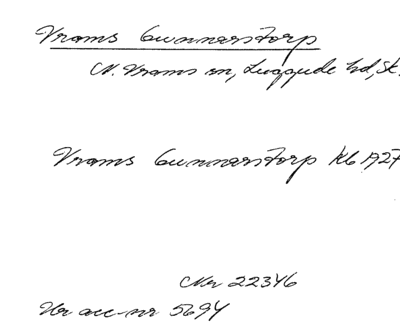 Vrams Gunnarstorp
N. Vrams sn, Luggude hd, Sk.
Vrams Gunnarstorp Kb 1927
Nr 22346
Ur acc-nr 5694